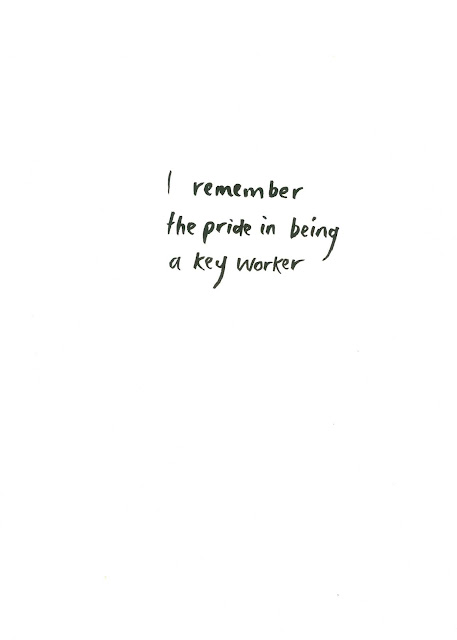 I remember
the pride in being
a key worker